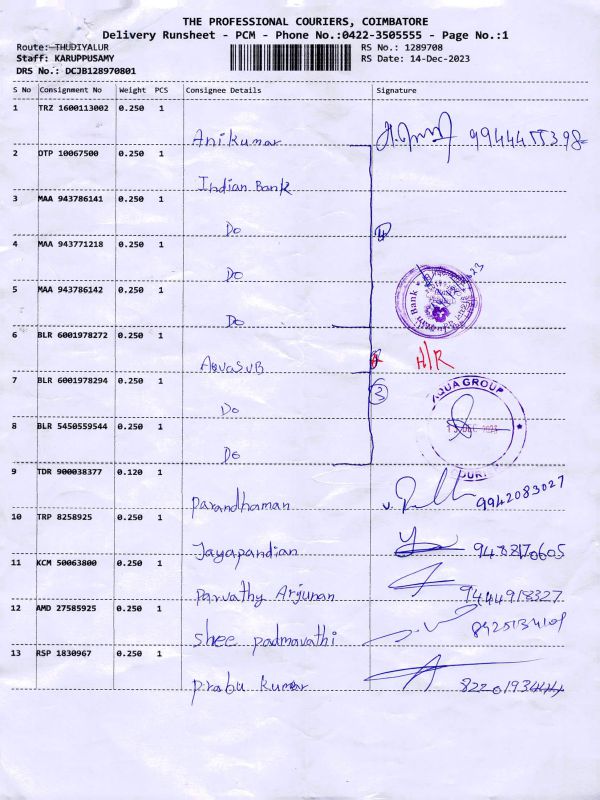 THE PROFESSIONAL COURIERS, COIMBATORE
Delivery Runsheet - PCM - Phone No.:0422-3505555 - Page No.:1
Route: THUDIYALUR RS No.: 1289708
Staff: KARUPPUSAMY RS Date: 14-Dec-2023
DRS No.: DCJB128970801
S No Consignment No Weight PCS Consignee Details Signature
1 TRZ 1600113002 0.250 1
Anikumar
2 OTP 10067500 0.250 1
Indian Bank
3 MAA 943786141 0.250 1
Do
4 MAA 943771218 0.250 1
Do
5 MAA 943786142 0.250 1
Bank
Do
6 BLR 6001978272 0.250 1
Aquasub H/R
7 BLR 6001978294 0.250 1
AQUA GROUP
3
Do
8 BLR 5450559544 0.250 1
DEC 2023
Do
9 TDR 900038377 0.120 1
Parandhaman 9942083027
10 TRP 8258925 0.250 1
Jayapandian
11 KCM 50063800 0.250 1
Parvathy Arjunan 9444918327
12 AMD 27585925 0.250 1
Shee padmavathi
13 RSP 1830967 0.250 1
Prabu Kumar